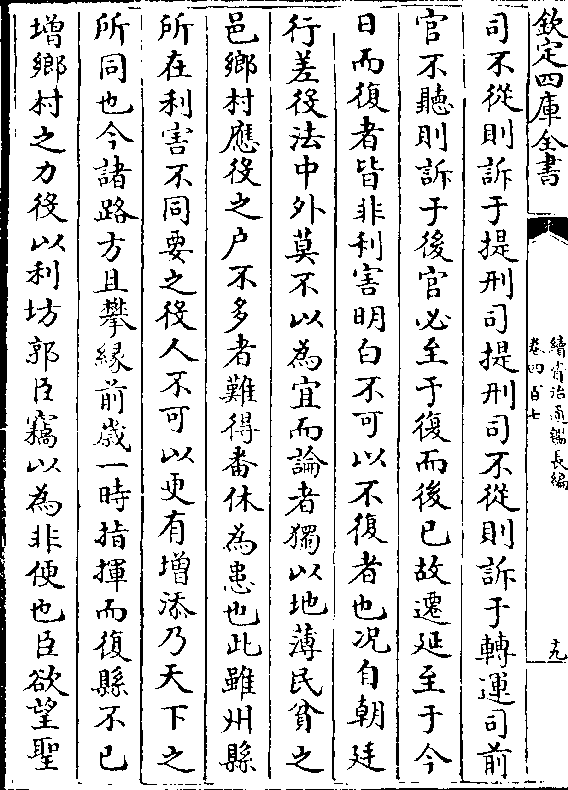 欽定四庫全書
續資治通鑑長編
卷四百七
十九
司不從則訴于提刑司提刑司不從則訴于轉運司前
官不聽則訴于後官必至于復而後已故遷延至于今
日而復者皆非利害明白不可以不復者也况自朝廷
行差役法中外莫不以為宜而論者獨以地薄民貧之
邑鄉村應役之户不多者難得番休為患也此雖州縣
所在利害不同要之役人不可以更有增添乃天下之
所同也今諸路方且攀緣前歲一時指揮而復縣不已
增鄉村之力役以利坊郭臣竊以為非便也臣欲望聖